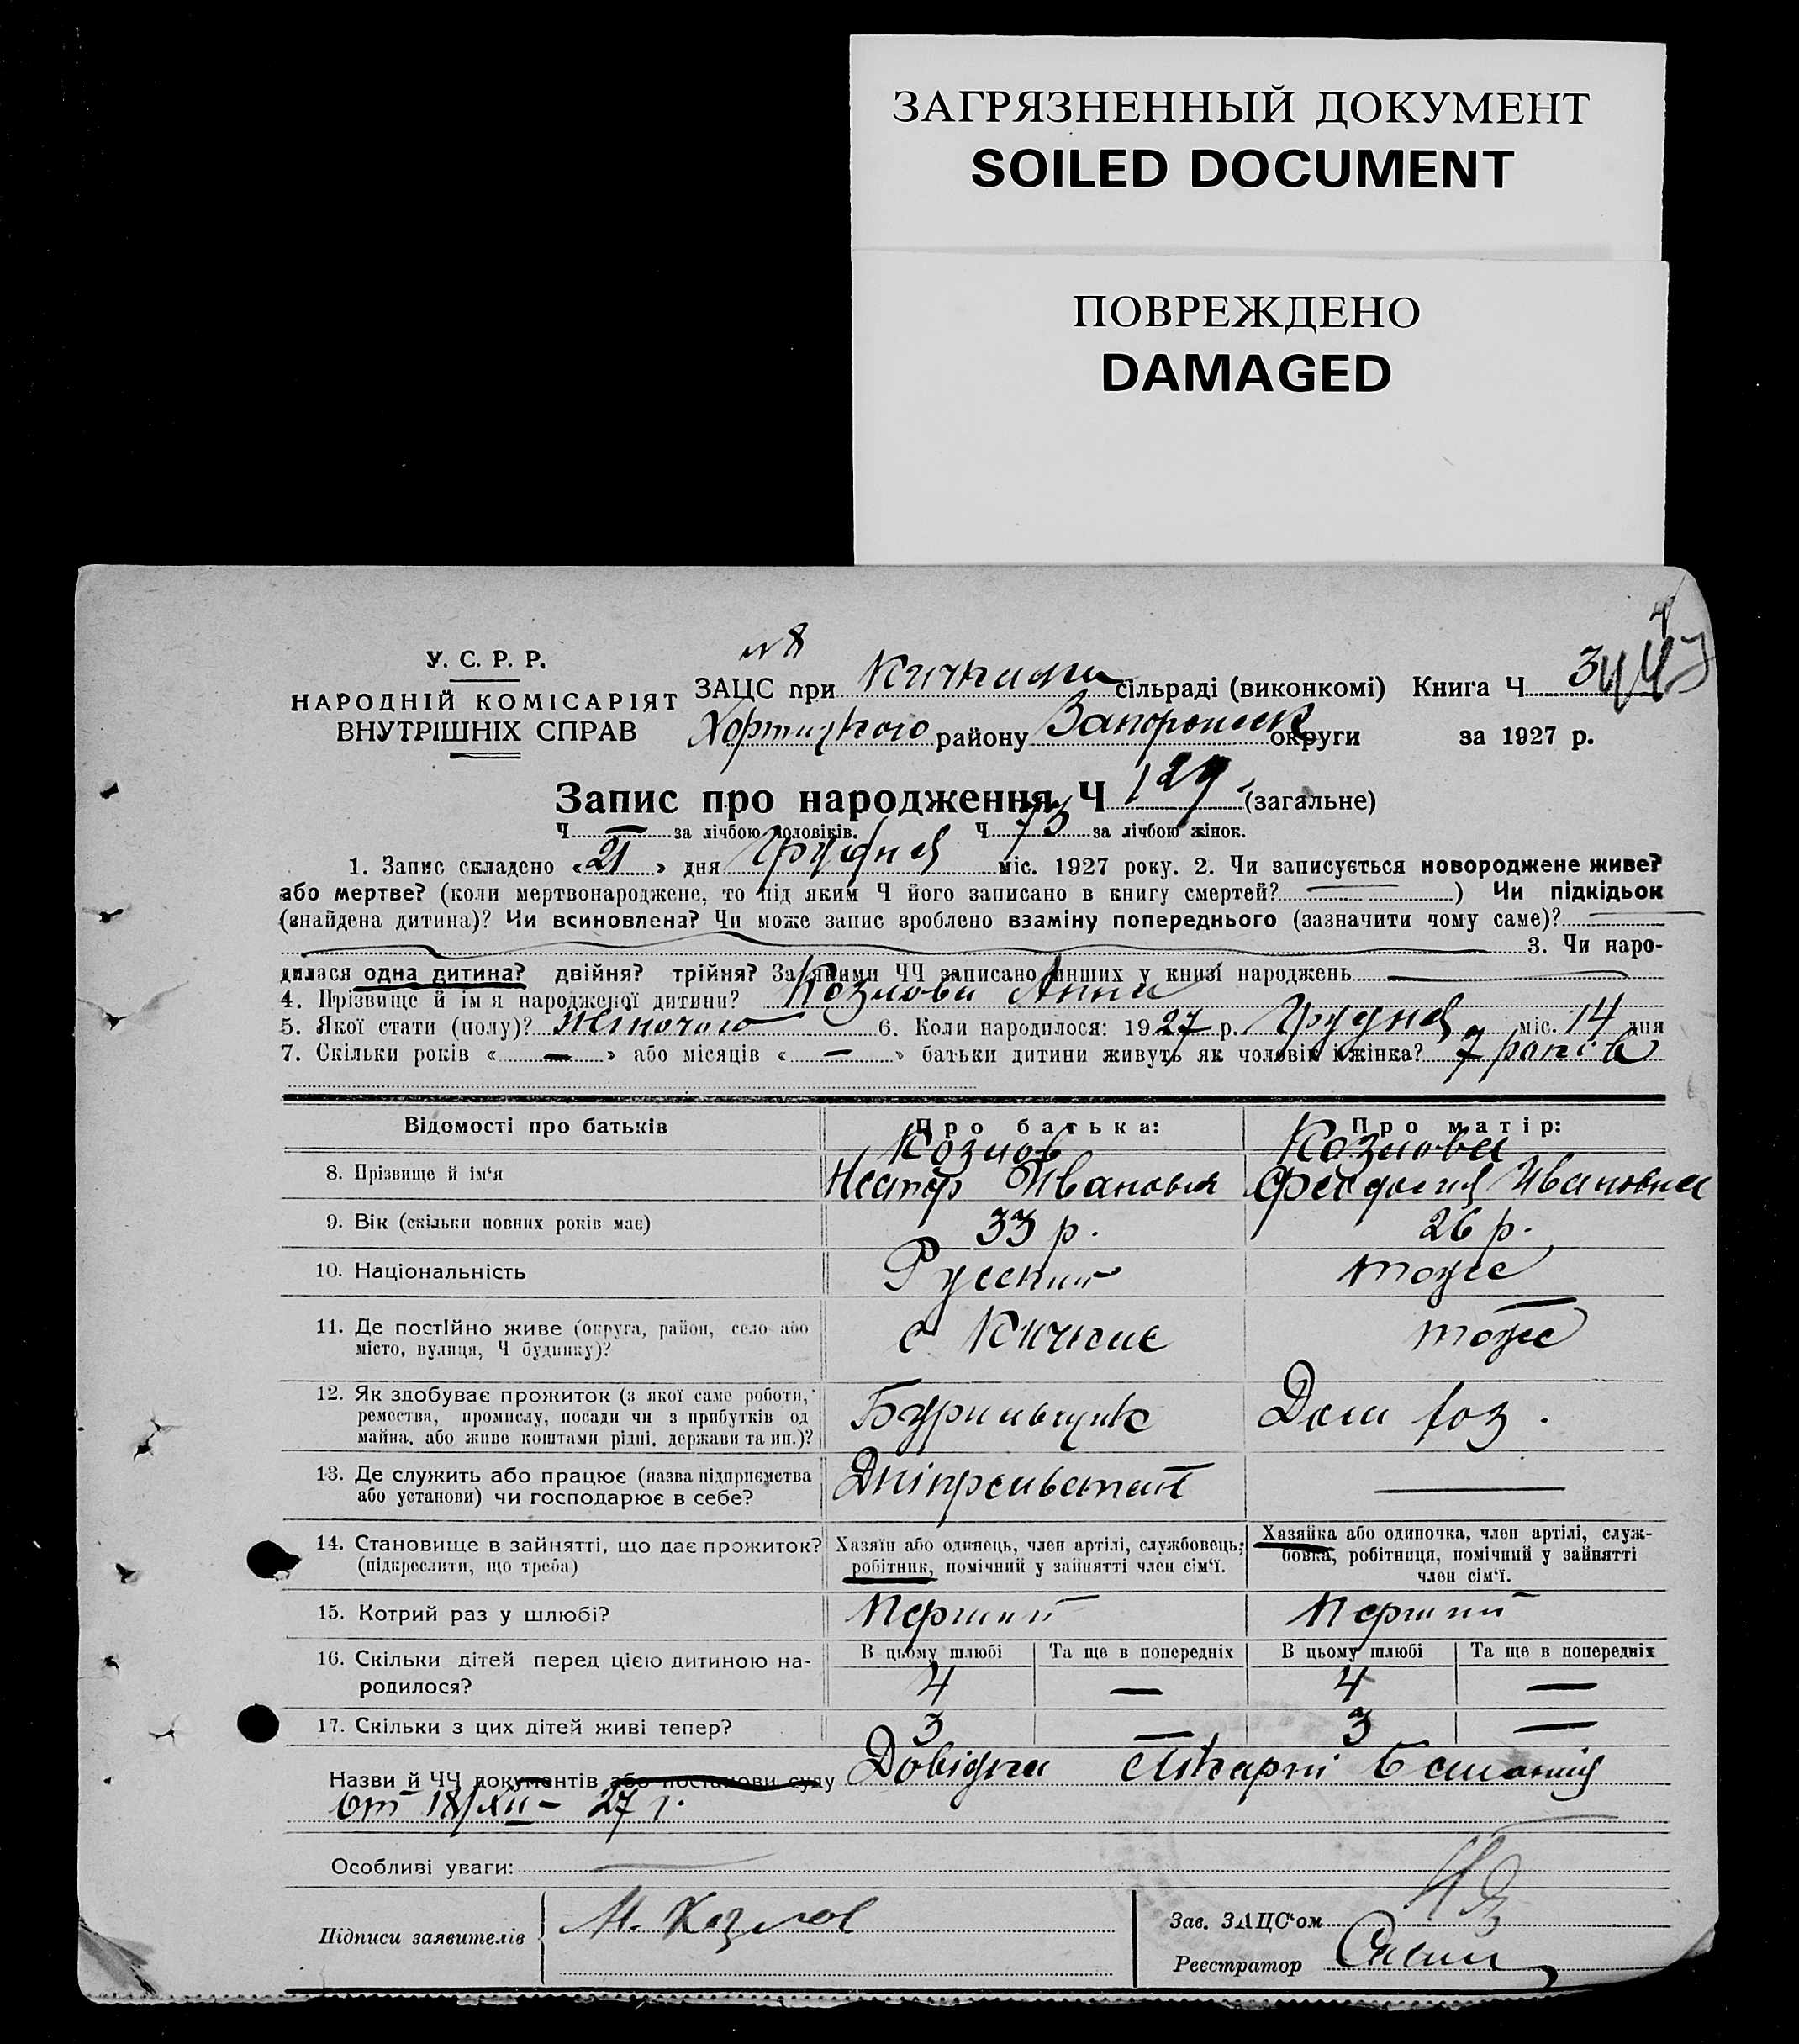 ЗАГРЯЗНЕННЫЙ ДОКУМЕНТ
SOILED DOCUMENT
ПОВРЕЖДЕНО
DAMAGED
У. С. Р. Р.
НАРОДНІЙ КОМІСАРІЯТ
ВНУТРІШНІХ СПРАВ
№ 8
ЗАЦС при Кичкаси сільраді (виконкомі) Книга Ч
Хортицького району Запорожск округи за 1927 р.
Запис про народження Ч 129 (загальне)
Ч. — за лічбою чоловіків. Ч 73 за лічбою жінок.
1. Запис складено «21» дня Грудня міс. 1927 року. 2. Чи записується новороджене живе?
або мертве? (коли мертвонароджене, то під яким Ч його записано в книгу смертей? — ) Чи підкідьок
(знайдена дитина)? Чи всиновлена? Чи може запис зроблено взаміну попереднього (зазначити чому саме)? —
3. Чи наро-
дилася одна дитина? двійня? трійня? За якими ЧЧ записано инших у книзі народжень —
4. Прізвище й ім'я народженої дитини? Козлова Анна
5. Якої стати (полу)? жіночого 6. Коли народилося: 1927 р. Грудня міс. 14 дня
7. Скільки років « — » або місяців « — » батьки дитини живуть як чоловік і жінка? 7 років
Відомості про батьків Про батька: Про матір:
8. Прізвище й ім'я Козлов Нестор Иванович Козлова Феодосия Ивановна
9. Вік (скільки повних років має) 33 р. 26 р.
10. Національність Русский тоже
11. Де постійно живе (округа, район, село або
місто, вулиця, Ч будинку)? с Кичкас тоже
12. Як здобуває прожиток (з якої саме роботи,
ремества, промислу, посади чи з прибутків од
майна, або живе коштами рідні, держави та ин.)? Бурильщик Дом хоз.
13. Де служить або працює (назва підприємства
або установи) чи господарює в себе? Дніпрельстан —
14. Становище в зайнятті, що дає прожиток?
(підкреслити, що треба)
Хазяїн або одинець, член артілі, службовець,
робітник, помічний у зайнятті член сім'ї.
Хазяйка або одиночка, член артілі, служ-
бовка, робітниця, помічний у зайнятті
член сім'ї.
15. Котрий раз у шлюбі? Перший Перший
16. Скільки дітей перед цією дитиною на-
родилося?
В цьому шлюбі Та ще в попередніх В цьому шлюбі Та ще в попередніх
4 — 4 —
17. Скільки з цих дітей живі тепер? 3 — 3 —
Назви й ЧЧ документів або постанови суду Довідка лікарні
от 18/XII - 27 г.
Особливі уваги: —
Підписи заявителів Н. Козлов
Зав. ЗАЦС'ом
Реєстратор